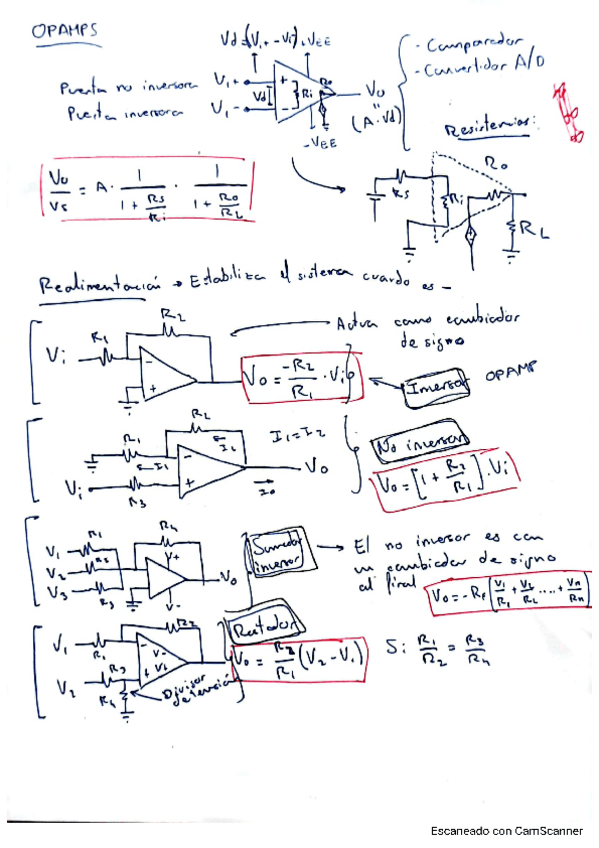 OPAMPS
Vd=(V1+ - V1-) +VEE
Puerta no inversora V1+
Puerta inversora V1-
+
Vd
Ri
Ro
-
Vo
(A·Vd)
-VEE
- Comparador
- Convertidor A/D
Resistencias:
Rs
Ri
Ro
RL
Vo/Vs = A · 1/(1 + Rs/Ri) · 1/(1 + Ro/RL)
Realimentación → Estabiliza el sistema cuando es -
Vi
R1
R2
-
+
Actua como cambiador
de signo
Vo = -R2/R1 · Vi
Inversor OPAMP
R1
R2
I1
I2
I1=I2
-
+
Vi
R3
Vo
Io
No inversor
Vo = [1 + R2/R1] · Vi
V1 R1
V2 R2
V3 R3
R4
-
+
V+
V-
Vo
Sumador
inversor
→ El no inversor es con
un cambiador de signo
al final
Vo = -RF (V1/R1 + V2/R2 .... + Vn/Rn)
V1
R1
R2
V2
R3
R4
- V-
+ V+
Divisor
de tensión
Restador
Vo = R2/R1 (V2 - V1)
Si R1/R2 = R3/R4
Escaneado con CamScanner